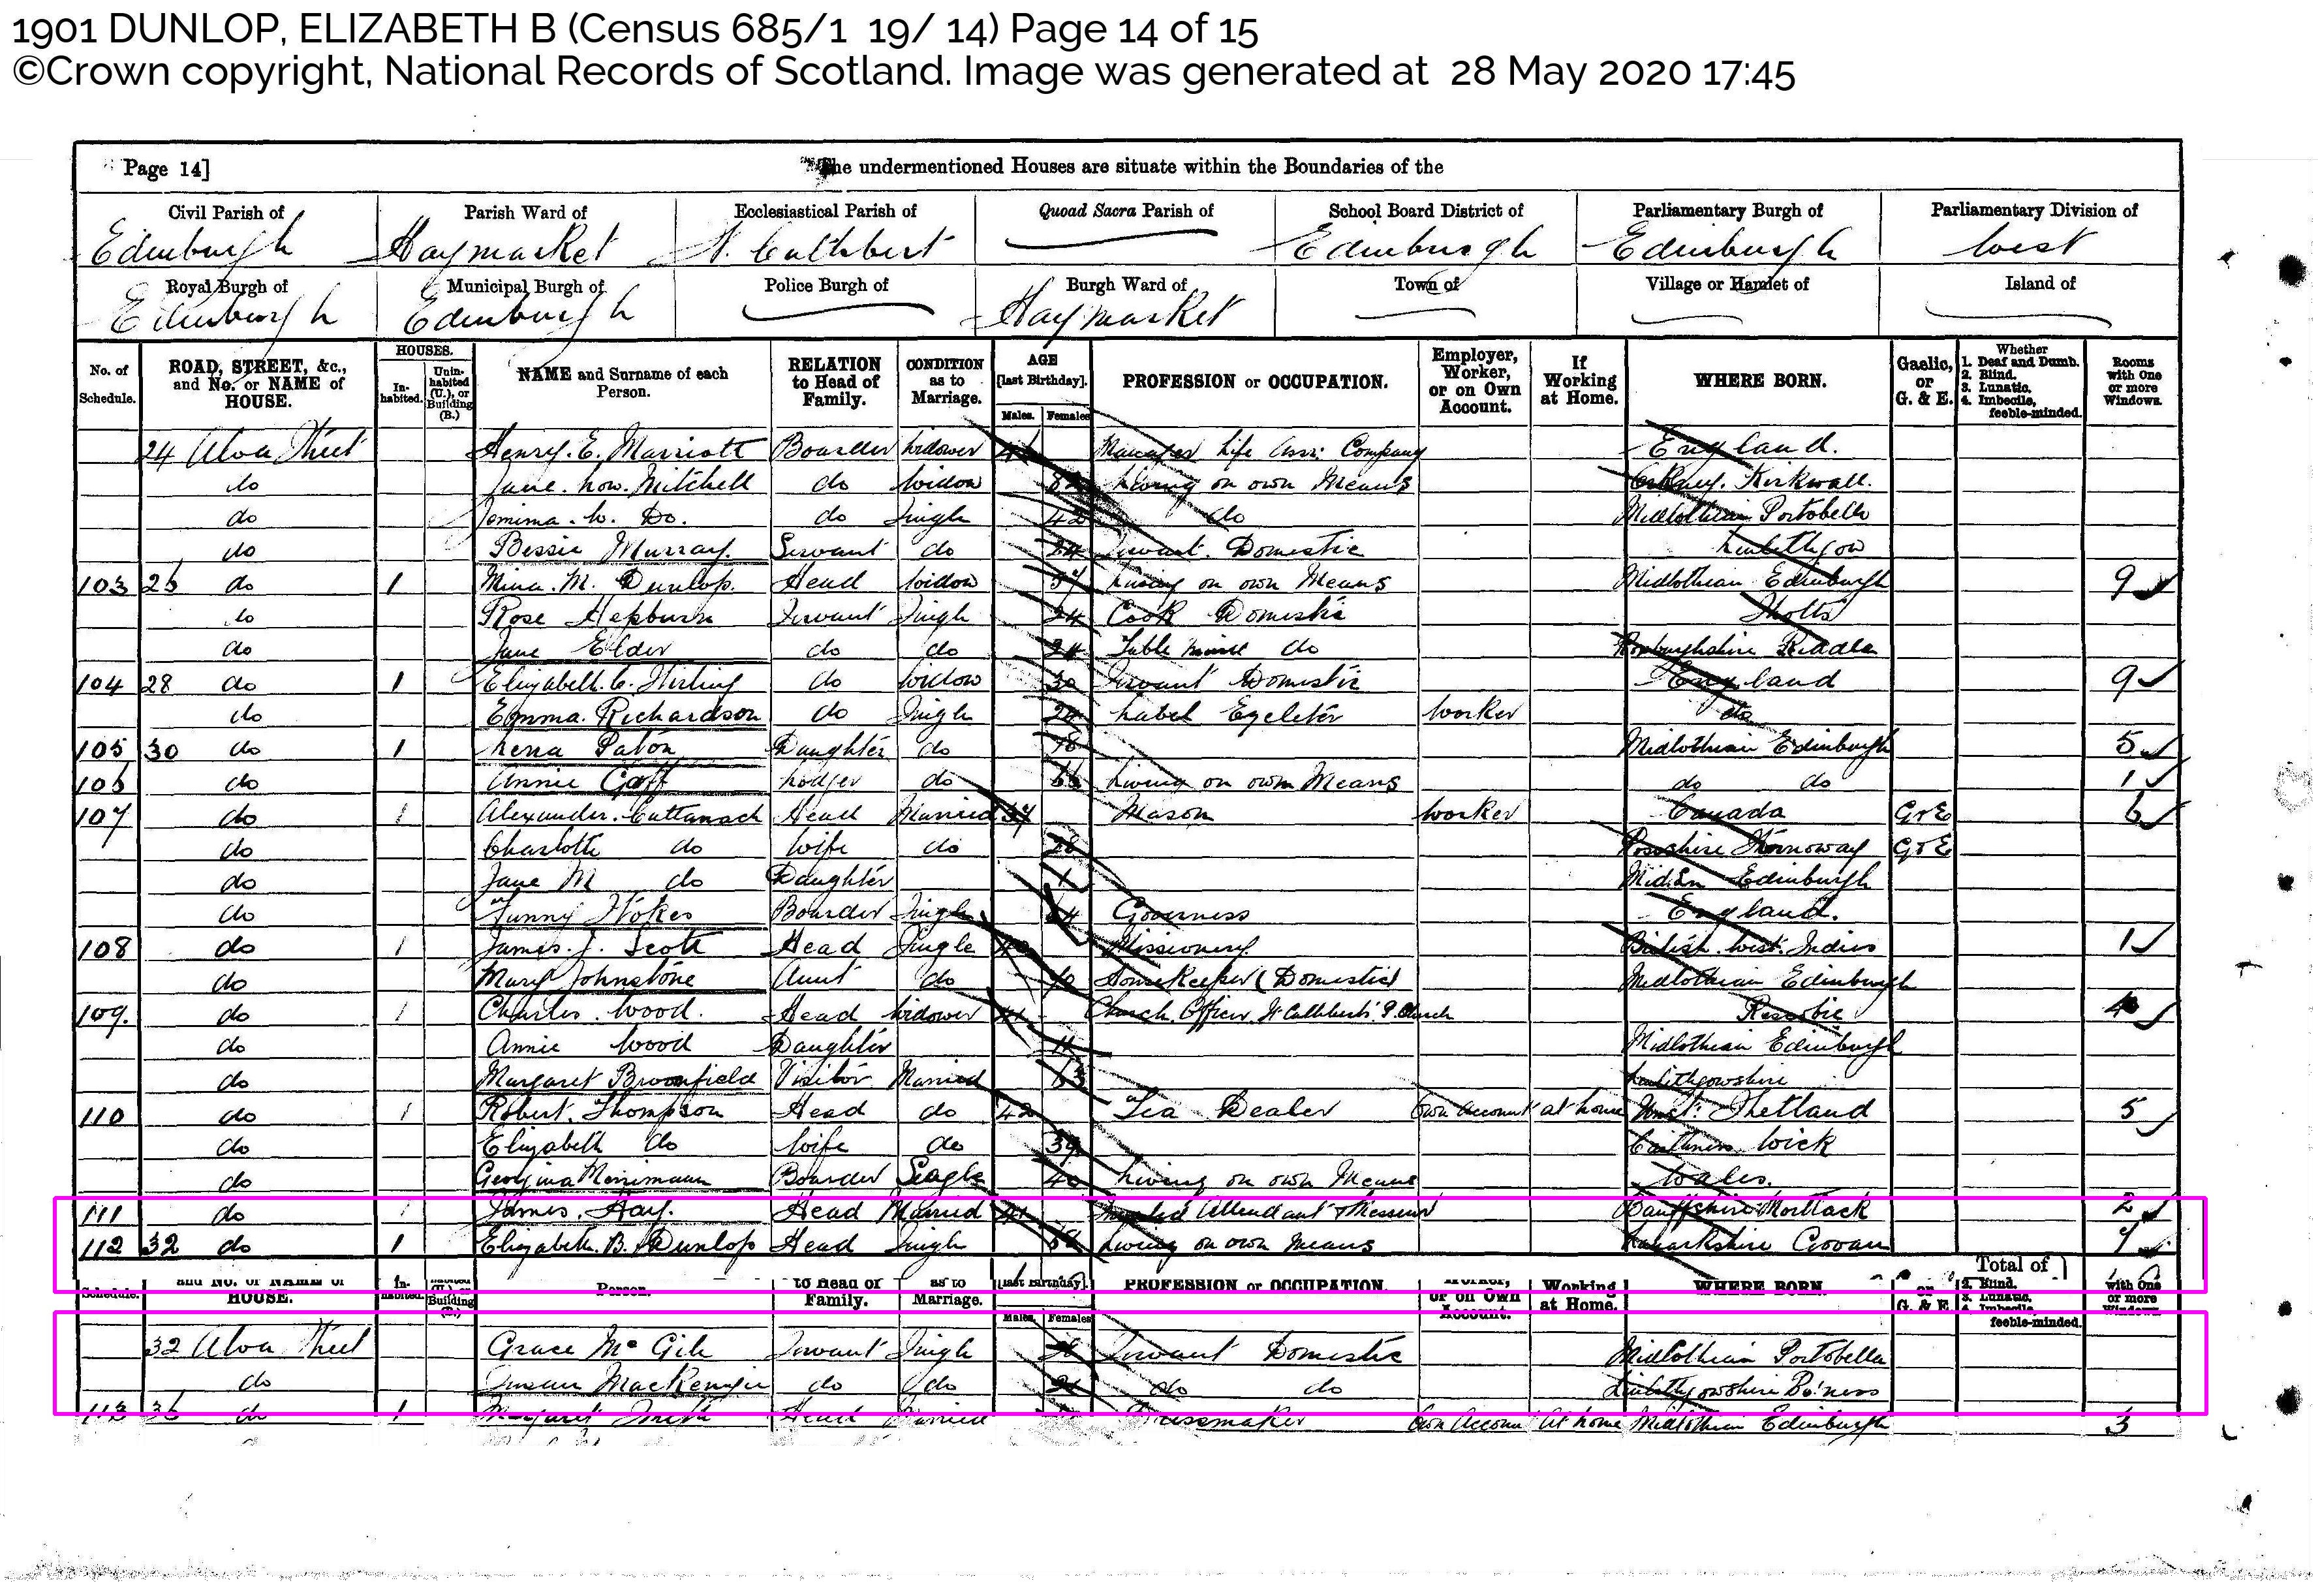 1901 DUNLOP, ELIZABETH B (Census 685/1 19/ 14) Page 14 of 15
©Crown copyright, National Records of Scotland. Image was generated at 28 May 2020 17:45
Page 14] The undermentioned Houses are situate within the Boundaries of the
Civil Parish of Parish Ward of Ecclesiastical Parish of Quoad Sacra Parish of School Board District of Parliamentary Burgh of Parliamentary Division of
Edinburgh Haymarket St. Cuthbert Edinburgh Edinburgh West
Royal Burgh of Municipal Burgh of Police Burgh of Burgh Ward of Town of Village or Hamlet of Island of
Edinburgh Edinburgh Haymarket
No. of Schedule. ROAD, STREET, &c., and No. or NAME of HOUSE. HOUSES. In-habited. Unin-habited (U.), or Building (B.) NAME and Surname of each Person. RELATION to Head of Family. CONDITION as to Marriage. AGE [last Birthday]. Males. Females PROFESSION or OCCUPATION. Employer, Worker, or on Own Account. If Working at Home. WHERE BORN. Gaelic, or G. & E. Whether 1. Deaf and Dumb. 2. Blind. 3. Lunatic. 4. Imbecile, feeble-minded. Rooms with One or more Windows.
24 Alva Street Henry. E. Marriott Boarder Widower Manager Life Assr: Company England.
do Jane. How. Mitchell do Widow 82 Living on own Means Orkney. Kirkwall.
do Jemima. H. Do. do Single 42 do Midlothian Portobello
do Bessie Murray. Servant do 24 Servant. Domestic Linlithgow
103 26 do 1 Mina. M. Dunlop. Head Widow 37 Living on own Means Midlothian Edinburgh 9
do Rose Hepburn Servant Single 24 Cook Domestic Shotts
do Jane Elder do do 24 Table Maid do Roxburghshire
104 28 do 1 Elizabeth. C. Stirling do Widow 30 Servant Domestic England 9
do Emma. Richardson do Single Label Worker do
105 30 do 1 Lena Paton Daughter do 18 Midlothian Edinburgh 5
106 do Annie Lodger do 66 Living on own Means do do 1
107 do 1 Alexander. Cattanach Head Married 37 Mason Worker Canada G & E 6
do Charlotte do Wife do 28 Rossshire Stornoway G & E
do Jane M do Daughter 1 Mid.Ln Edinburgh
do Fanny Stokes Boarder Single 64 Governess England.
108 do 1 James. J. Scott Head Single 40 Missionary. British West. Indies 1
do Mary Johnstone Aunt do 70 HouseKeeper (Domestic) Midlothian Edinburgh
109. do 1 Charles. Wood. Head Widower 41 Church. Officer. St Cuthbert's. P. Church 4
do Annie Wood Daughter 11 Midlothian Edinburgh
do Margaret Broomfield Visitor Married 63 Linlithgowshire
110 do 1 Robert. Thompson Head do 42 Tea Dealer Own Account at home Unst: Shetland 5
do Elizabeth do Wife do 39 Caithness Wick
do Georgina Merrimann Boarder Single 40 Living on own Means Wales.
111 do 1 James. Hay. Head Married 41 Attendant & Messenger Banffshire Mortlack 2
112 32 do 1 Elizabeth. B. Dunlop Head Single Living on own Means Lanarkshire Govan 9
Total of
Schedule. and No. or NAME of HOUSE. In-habited. Building Person. to Head of Family. as to Marriage. [last Birthday]. PROFESSION or OCCUPATION. or on Own Account. Working at Home. WHERE BORN. or G. & E 2. Blind. 3. Lunatic. 4. Imbecile feeble-minded. with One or more Windows
Males. Females
32 Alva Street Grace Mc Gile Servant Single Servant Domestic Midlothian Portobello
do Susan MacKenzie do do 21 do do Linlithgowshire Bo'ness
113 36 do 1 Margaret Smith Head Married Dressmaker Own Accoun At home Midlothian Edinburgh 3